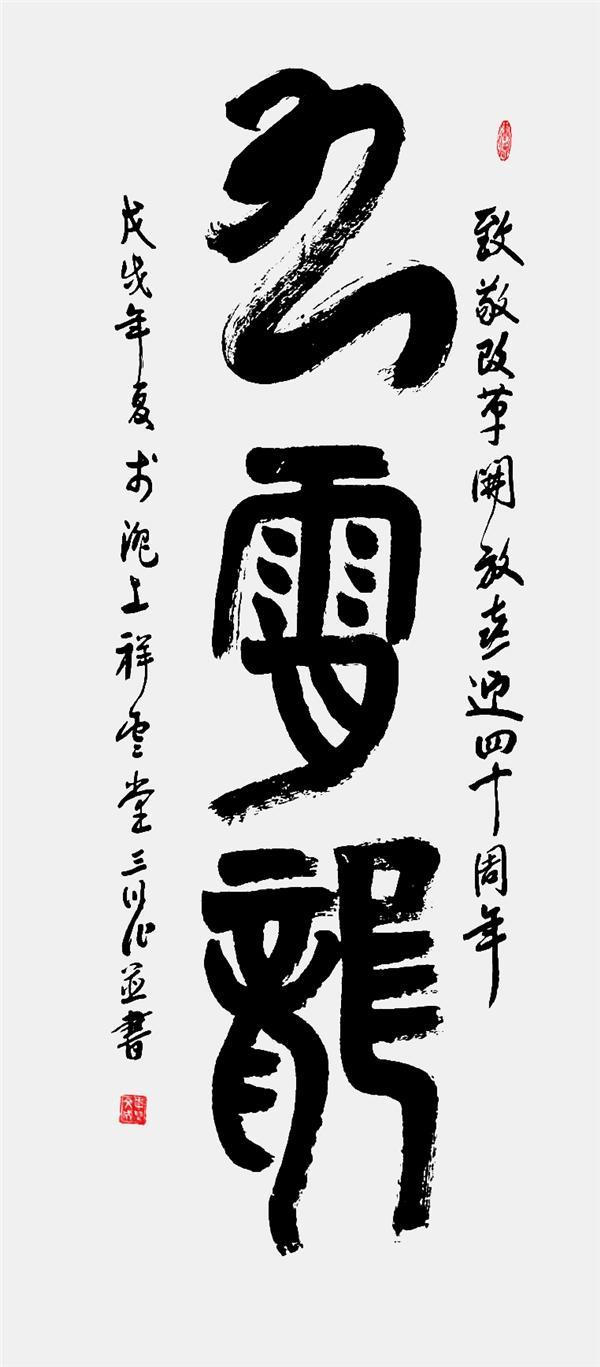 致敬改革開放喜迎四十周年
龍
戊戌年夏於滬上祥雲堂三作並書